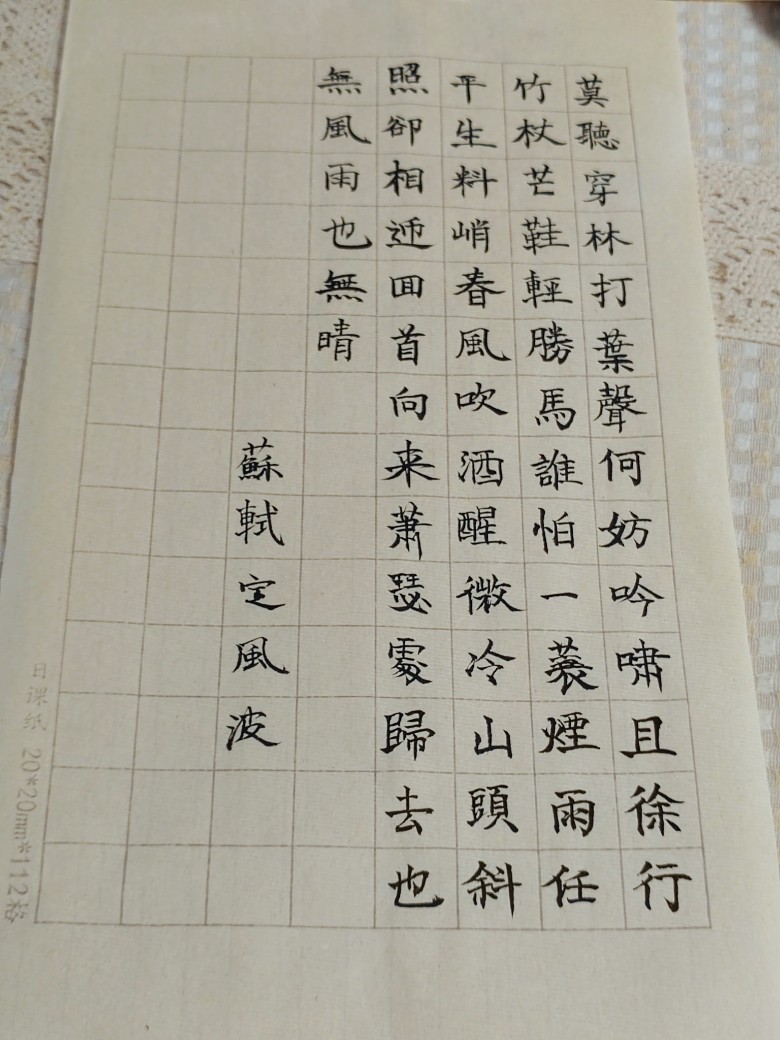 莫聽穿林打葉聲何妨吟嘯且徐行
竹杖芒鞋輕勝馬誰怕一蓑煙雨任
平生料峭春風吹酒醒微冷山頭斜
照卻相迎回首向来蕭瑟處歸去也
無風雨也無晴
蘇軾定風波
日课纸 20*20mm*112格